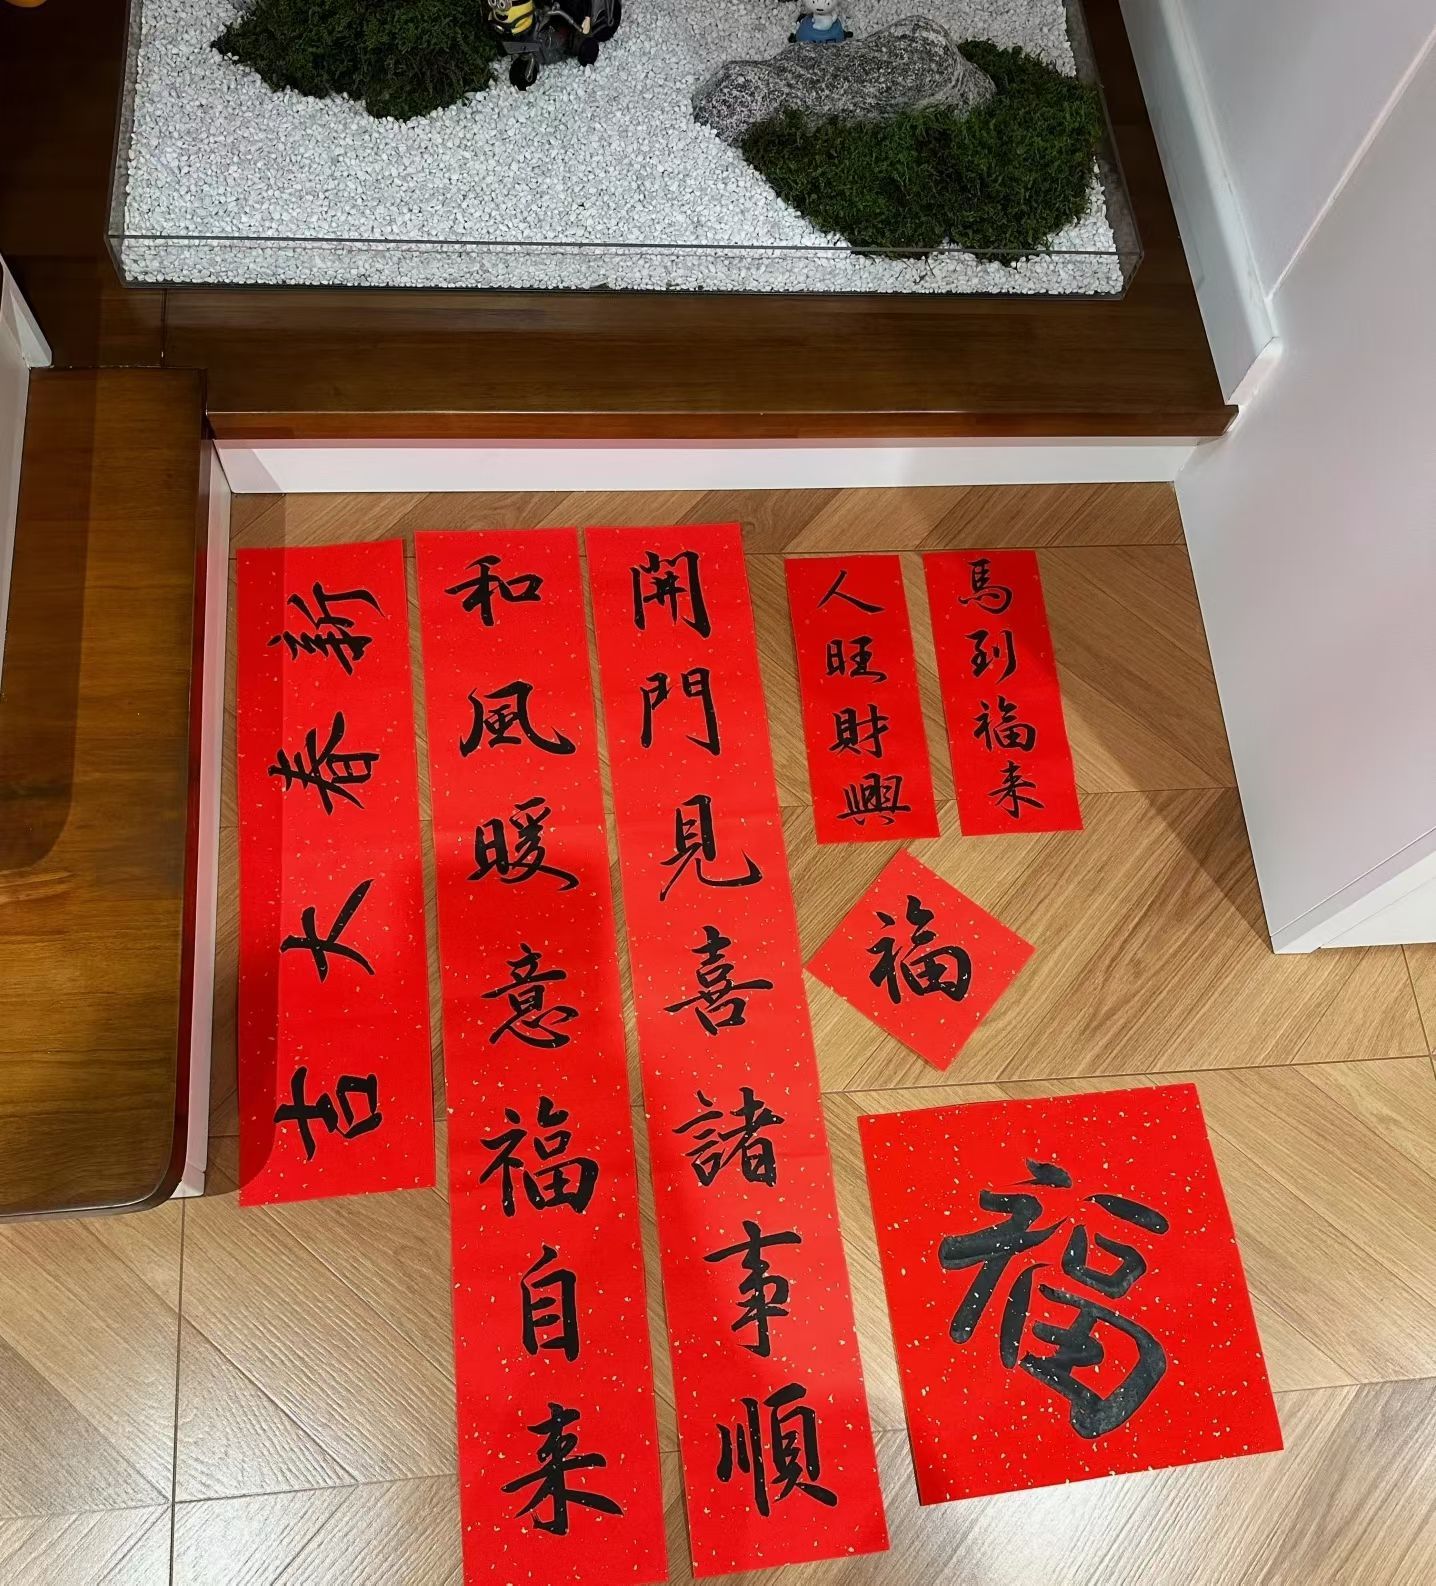 開門見喜諸事順
和風暖意福自来
新春大吉
馬到福来
人旺財興
福
福